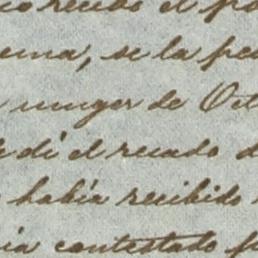 recibo el
ema, se la pe
muger de Oct
le di el recado d
había recibido
ía contestado